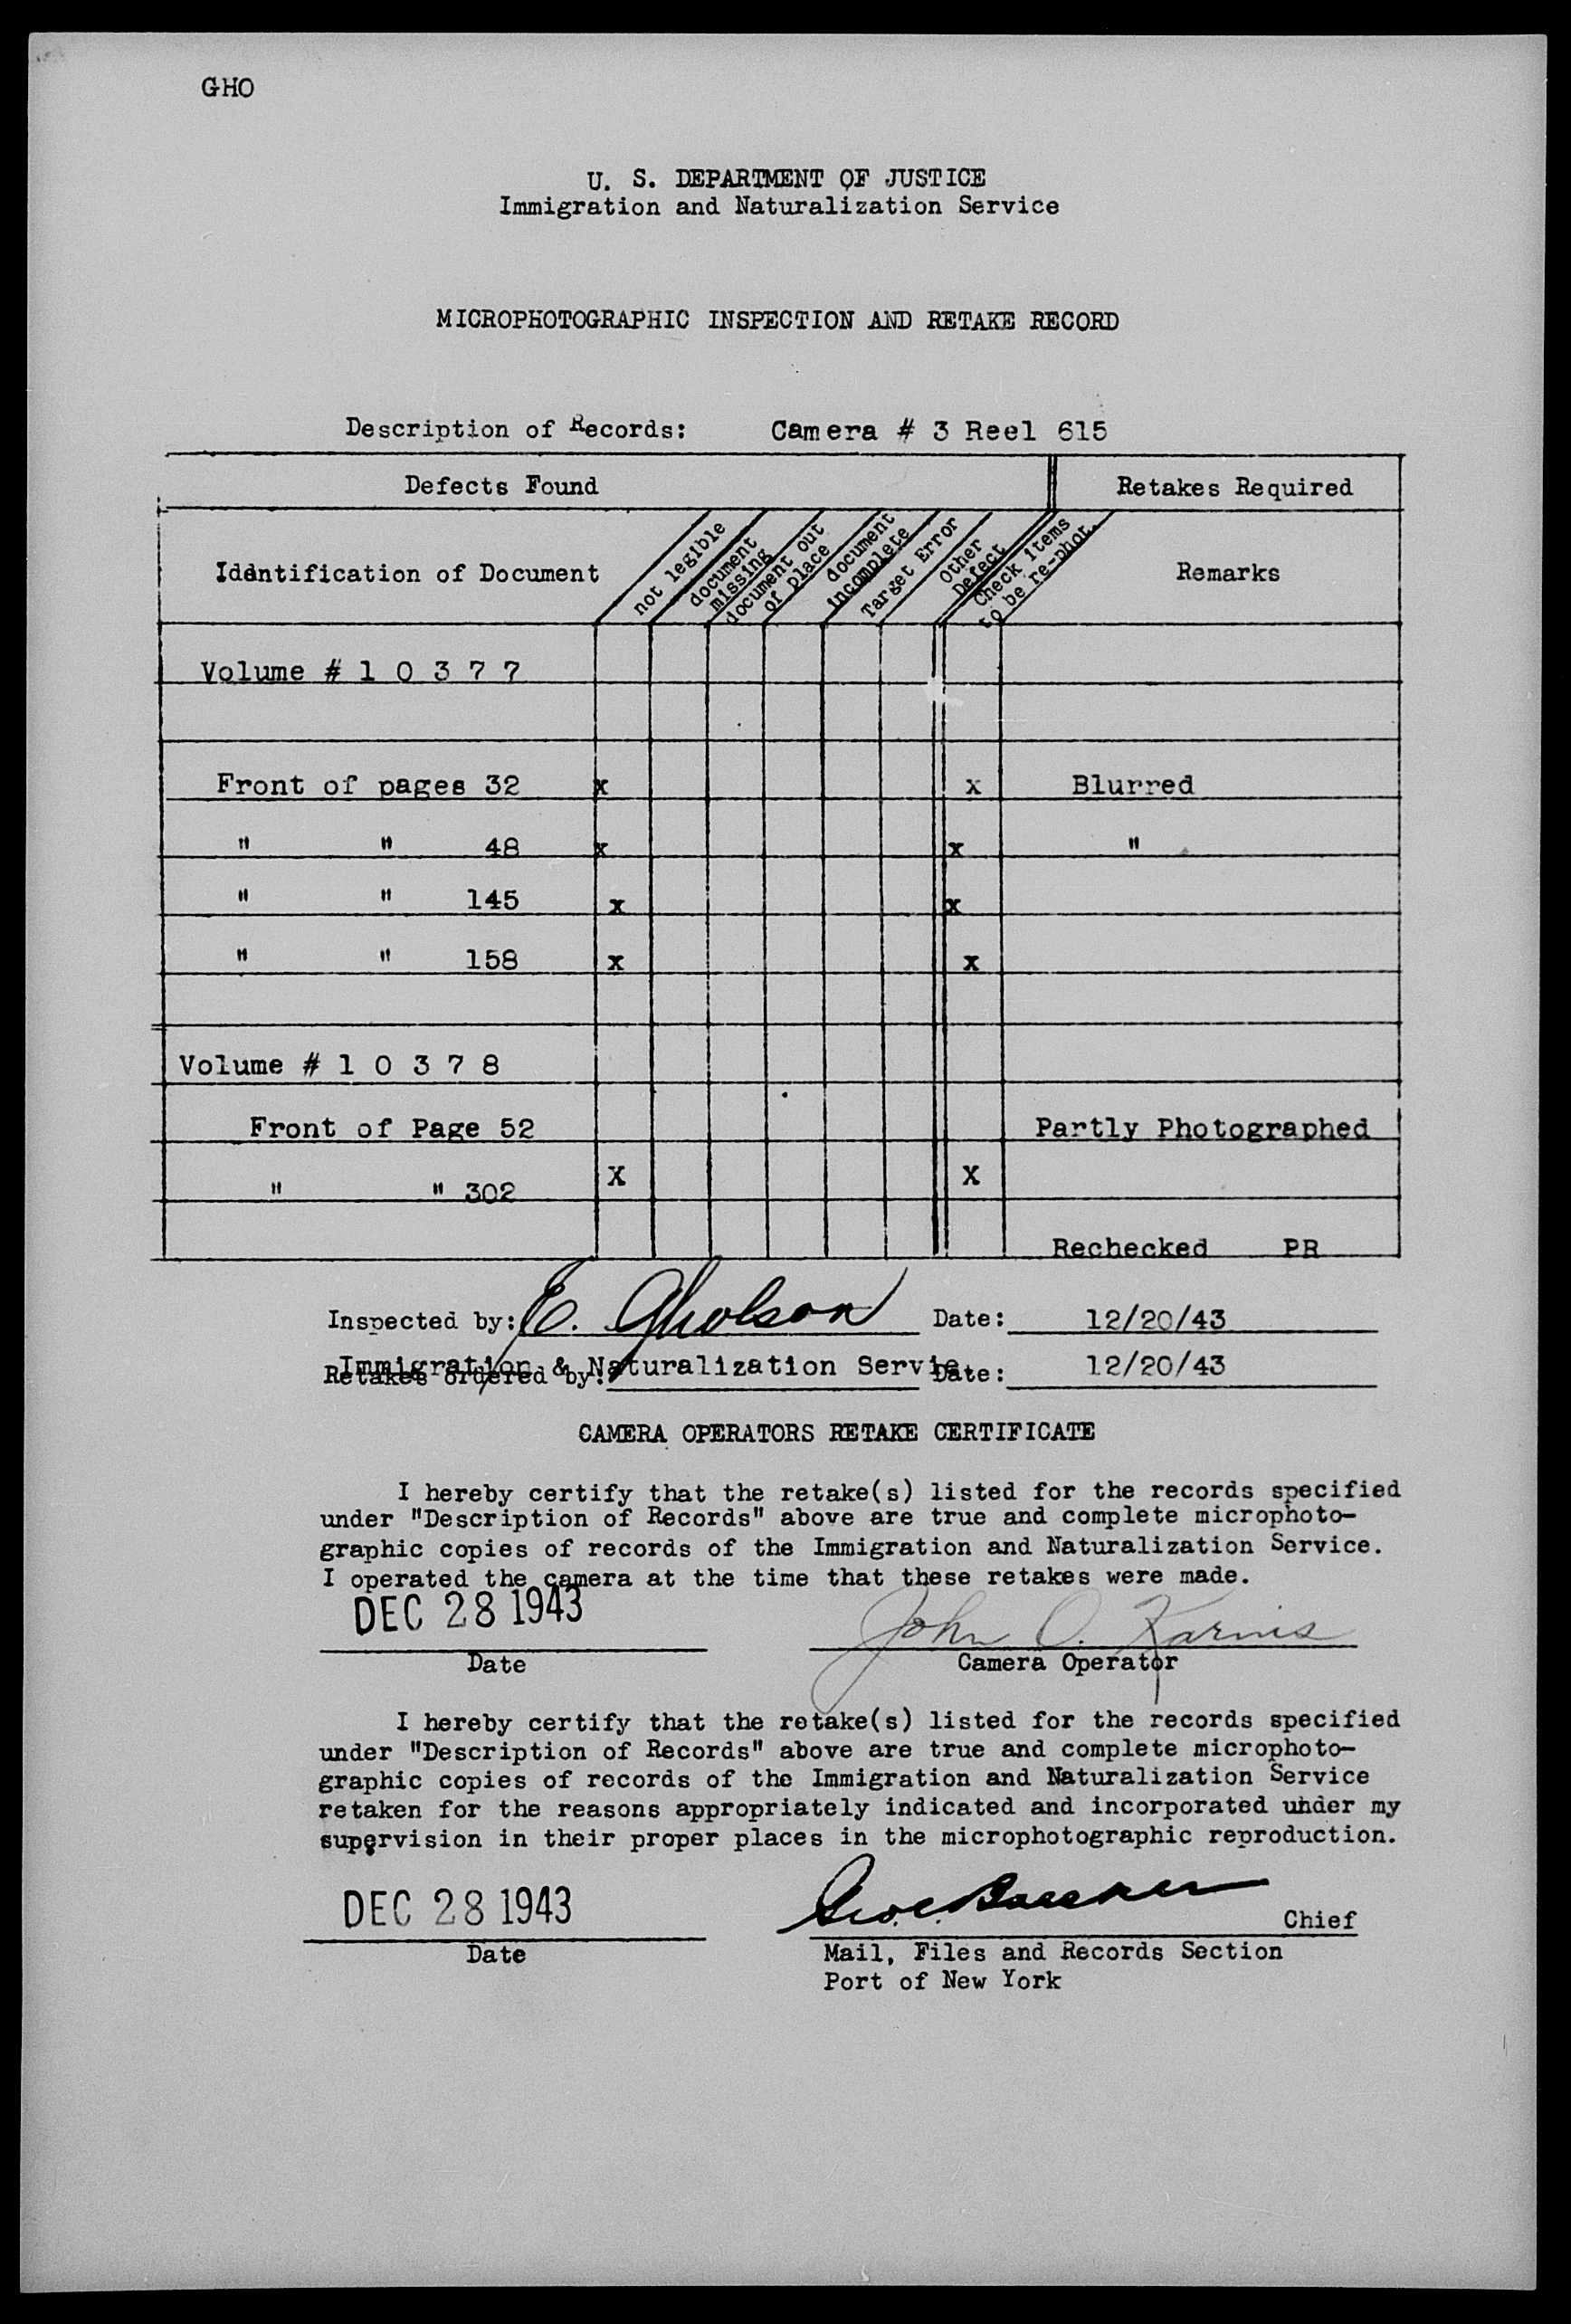 GHO
U. S. DEPARTMENT OF JUSTICE
Immigration and Naturalization Service
MICROPHOTOGRAPHIC INSPECTION AND RETAKE RECORD
Description of Records: Camera # 3 Reel 615
Defects Found Retakes Required
Identification of Document
not legible
document missing
document out of place
document incomplete
Target Error
Other Defect
Check items to be re-phot.
Remarks
Volume # 1 0 3 7 7
Front of pages 32 x x Blurred
" " 48 x x "
" " 145 x x
" " 158 x x
Volume # 1 0 3 7 8
Front of Page 52 Partly Photographed
" " 302 X X
Rechecked PR
Inspected by: E. Gholson Date: 12/20/43
Immigration & Naturalization Servie
Retakes ordered by: Date: 12/20/43
CAMERA OPERATORS RETAKE CERTIFICATE
I hereby certify that the retake(s) listed for the records specified
under "Description of Records" above are true and complete microphoto-
graphic copies of records of the Immigration and Naturalization Service.
I operated the camera at the time that these retakes were made.
DEC 28 1943 John O. Karins
Date Camera Operator
I hereby certify that the retake(s) listed for the records specified
under "Description of Records" above are true and complete microphoto-
graphic copies of records of the Immigration and Naturalization Service
retaken for the reasons appropriately indicated and incorporated under my
supervision in their proper places in the microphotographic reproduction.
DEC 28 1943 Chief
Date Mail, Files and Records Section
Port of New York